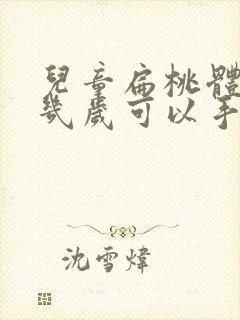 兒童扁桃體
幾歲可以手
沈雪煒